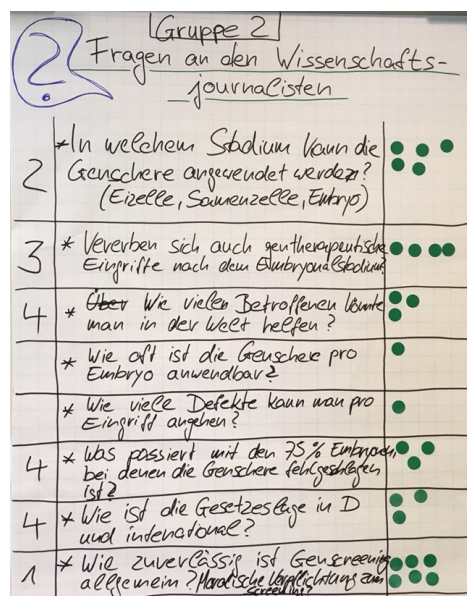 Gruppe 2
?
Fragen an den Wissenschafts-
journalisten
2
*In welchem Stadium kann die
Genschere angewendet werden?
(Eizelle, Samenzelle, Embryo)
3
* Vererben sich auch gentherapeutische
Eingriffe nach dem Embryonalstadium?
4
* Über Wie vielen Betroffenen könnte
man in der Welt helfen?
* Wie oft ist die Genschere pro
Embryo anwendbar?
* Wie viele Defekte kann man pro
Eingriff angehen?
4
* Was passiert mit den 75% Embryonen,
bei denen die Genschere fehlgeschlagen
ist?
4
* Wie ist die Gesetzeslage in D
und international?
1
* Wie zuverlässig ist Genscreening
allgemein? Moralische Verpflichtung zum
Screening?